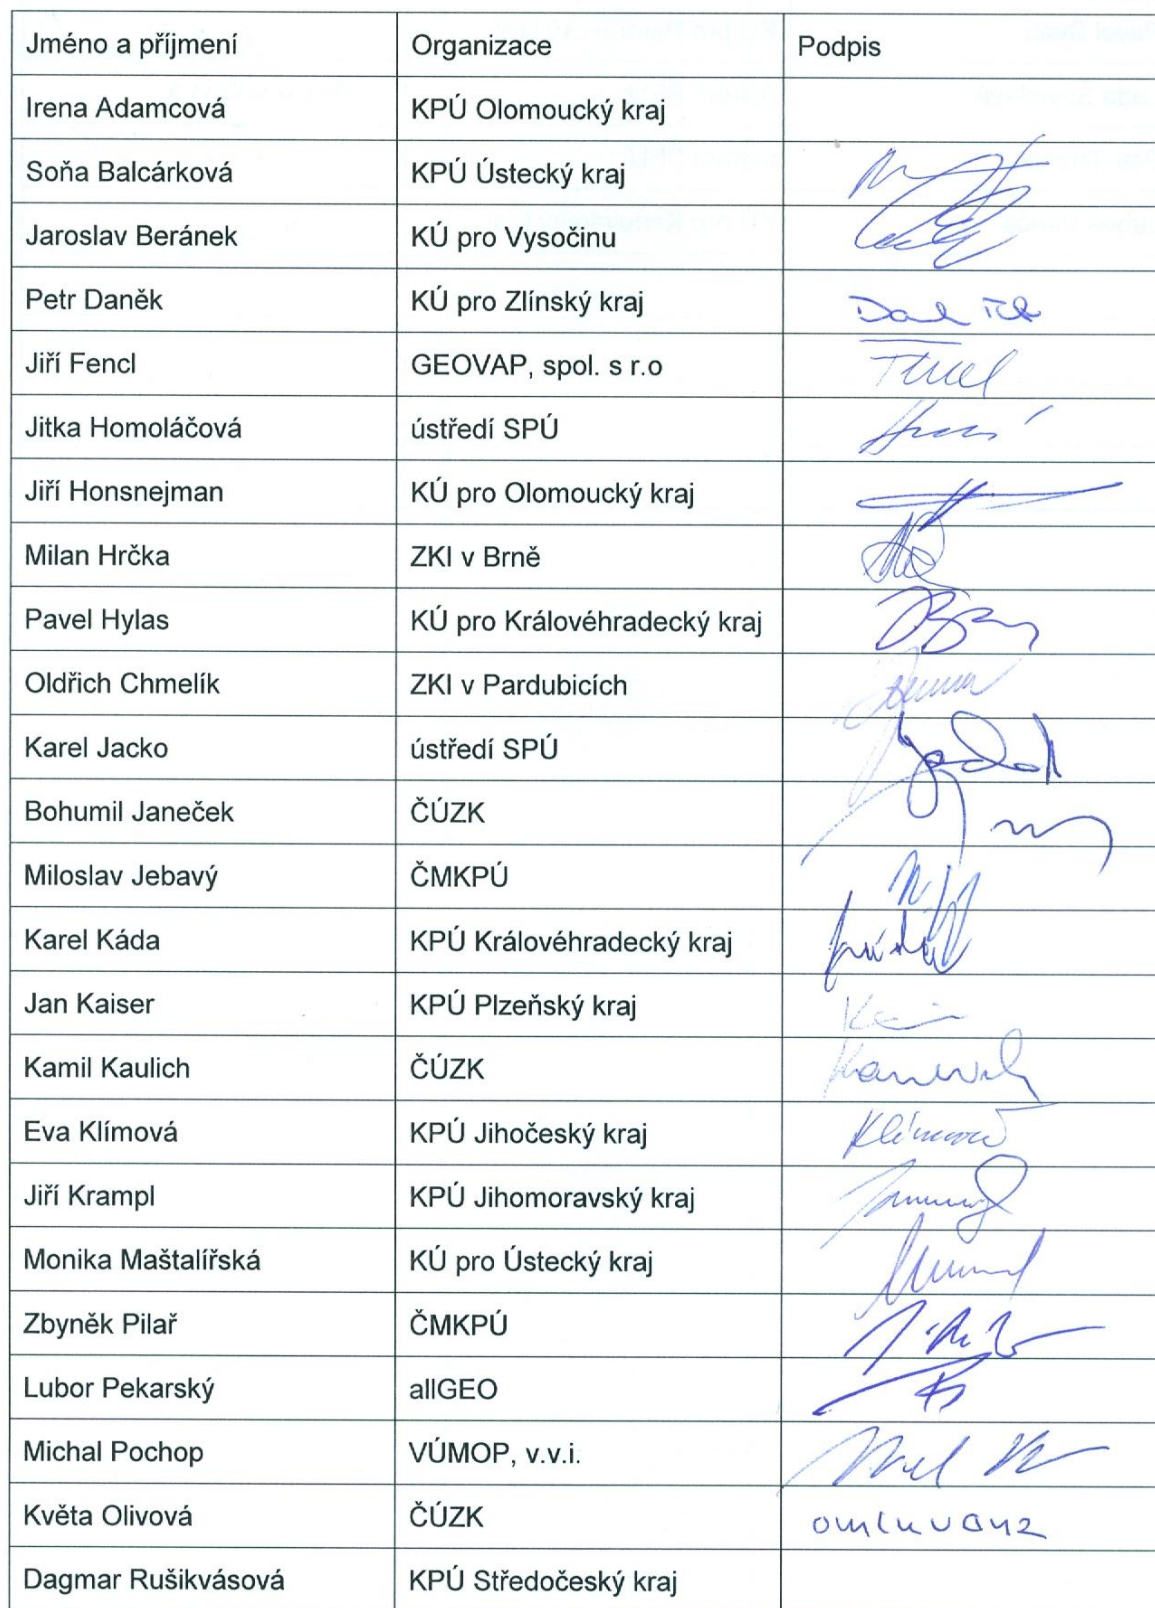 Jméno a příjmení Organizace Podpis
Irena Adamcová KPÚ Olomoucký kraj
Soňa Balcárková KPÚ Ústecký kraj
Jaroslav Beránek KÚ pro Vysočinu
Petr Daněk KÚ pro Zlínský kraj
Jiří Fencl GEOVAP, spol. s r.o
Jitka Homoláčová ústředí SPÚ
Jiří Honsnejman KÚ pro Olomoucký kraj
Milan Hrčka ZKI v Brně
Pavel Hylas KÚ pro Královéhradecký kraj
Oldřich Chmelík ZKI v Pardubicích
Karel Jacko ústředí SPÚ
Bohumil Janeček ČÚZK
Miloslav Jebavý ČMKPÚ
Karel Káda KPÚ Královéhradecký kraj
Jan Kaiser KPÚ Plzeňský kraj
Kamil Kaulich ČÚZK
Eva Klímová KPÚ Jihočeský kraj Klímová
Jiří Krampl KPÚ Jihomoravský kraj
Monika Maštalířská KÚ pro Ústecký kraj
Zbyněk Pilař ČMKPÚ
Lubor Pekarský allGEO
Michal Pochop VÚMOP, v.v.i.
Květa Olivová ČÚZK omluvena
Dagmar Rušikvásová KPÚ Středočeský kraj